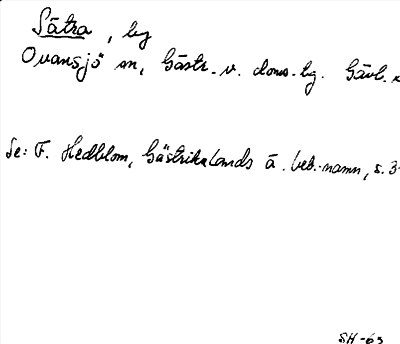 Sätra, by
Ovansjö sn, Gästr. v. doms.hg. Gävl.
Se: F. Hedblom, Gästriklands ä. beb.namn, s. 3
SH-63